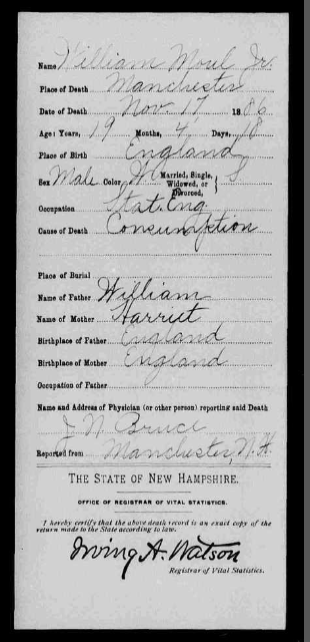 Name William Moul Jr.
Place of Death Manchester
Date of Death Nov. 17 1886
Age: Years, 19 Months, 4 Days,
Place of Birth England
Sex Male Color W. Married, Single, Widowed, or Divorced, } S
Occupation Stat. Eng.
Cause of Death Consumption
Place of Burial
Name of Father William
Name of Mother Harriet
Birthplace of Father England
Birthplace of Mother England
Occupation of Father
Name and Address of Physician (or other person) reporting said Death
J N Bruce
Reported from Manchester, N. H.
THE STATE OF NEW HAMPSHIRE.
OFFICE OF REGISTRAR OF VITAL STATISTICS.
I hereby certify that the above death record is an exact copy of the
return made to the State according to law.
Irving A. Watson
Registrar of Vital Statistics.